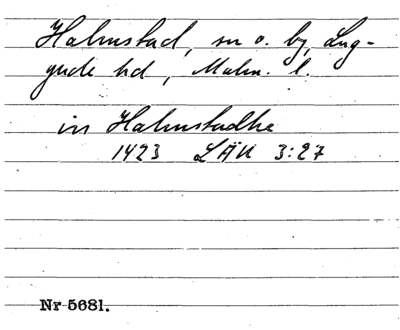 Halmstad, sn o. by, Lug-
gude hd, Malm. l.
in Halmstadhe
1423 LÄU 3:27
Nr 5681.